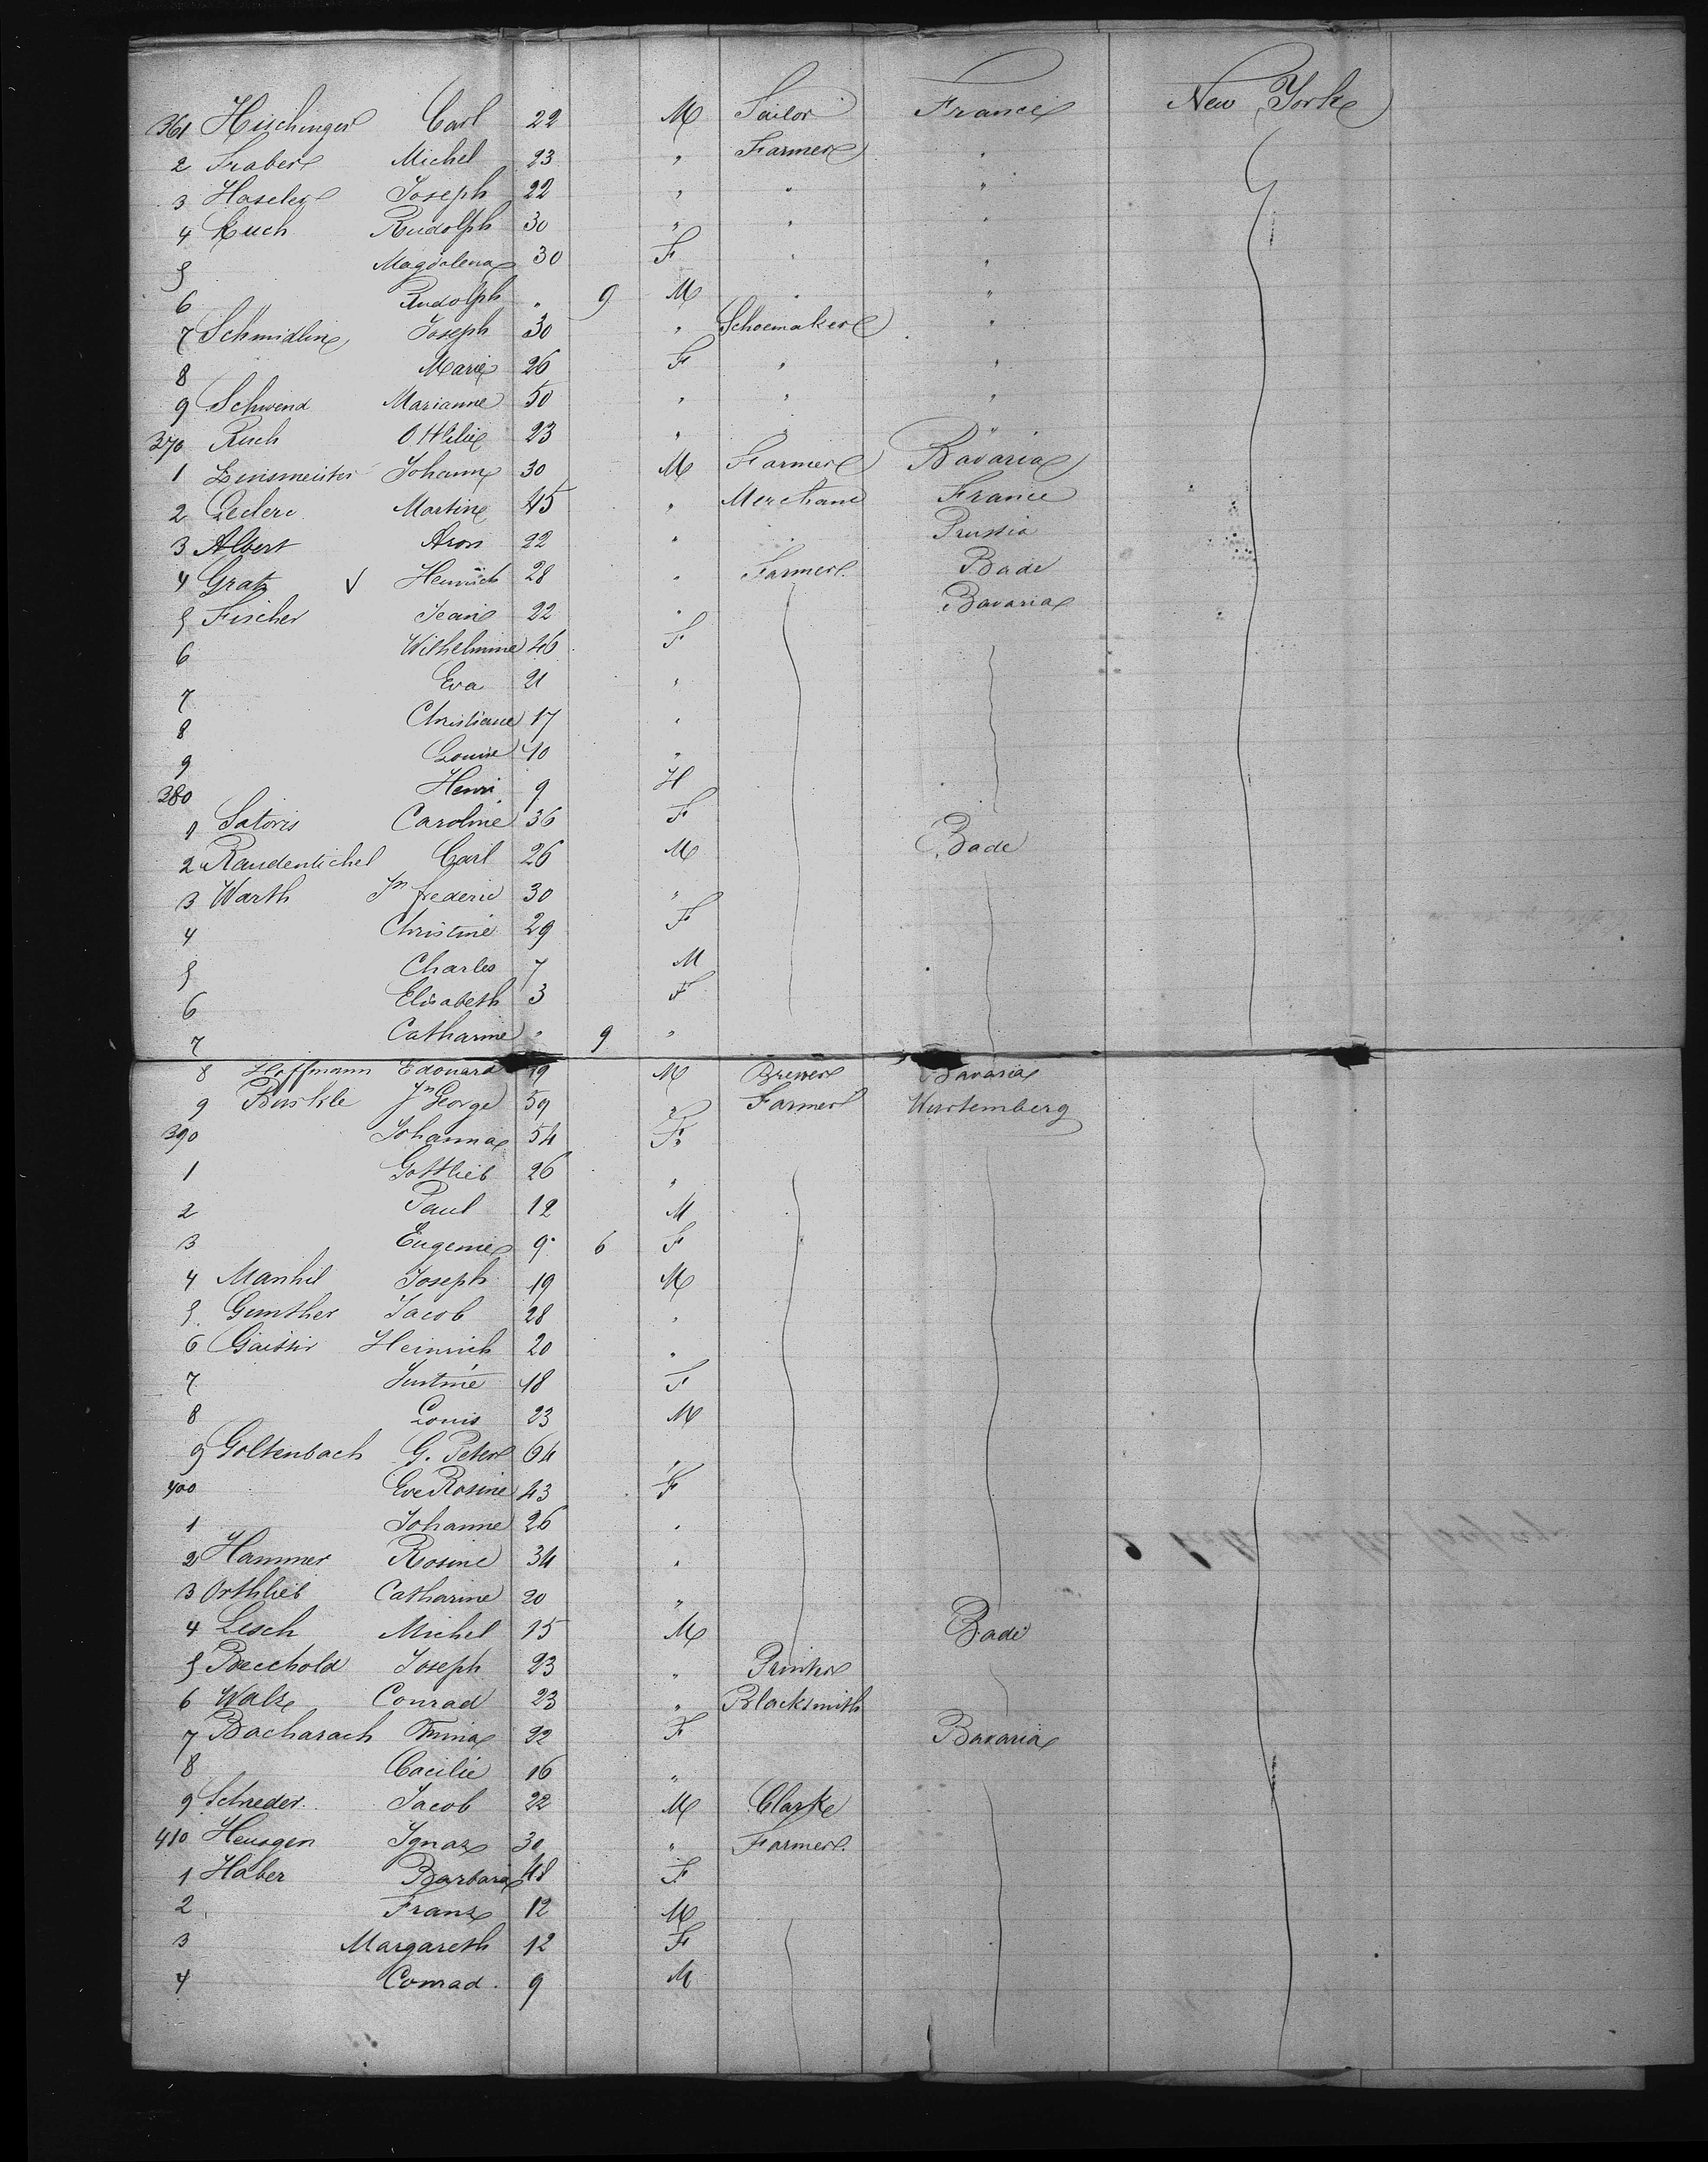 361 Hischinger Carl 22 M Sailor France New York
2 Fraber Michel 23 " Farmer "
3 Haseler Joseph 22 " " "
4 Ruch Rudolph 30 " " "
5 Magdalena 30 F " "
6 Rudolph " 9 M " "
7 Schmidlin Joseph 30 " Schoemaker "
8 Marie 26 F " "
9 Schwend Marianne 50 " " "
370 Ruch Ottilie 23 " " "
1 Zinsmeister Johann 30 M Farmer Bavaria
2 Leclerc Martin 45 " Merchand France
3 Albert Aron 22 " " Prussia
4 Gratz V Heinrich 28 " Farmer Bade
5 Fischer Jean 22 " Bavaria
6 Wilhelmine 46 F
7 Eva 21 "
8 Christiane 17 "
9 Louise 10 "
380 Henri 9 H
1 Satoris Caroline 36 F
2 Raudentichel Carl 26 M Bade
3 Warth Jn frederic 30 "
4 Christine 29 F
5 Charles 7 M
6 Elisabeth 3 F
7 Catharine " 9 "
8 Hoffmann Edouard 19 M Brewer Bavaria
9 Buskle Jn George 59 " Farmer Wurtemberg
390 Johanna 54 F
1 Gottlieb 26 "
2 Paul 12 M
3 Eugenie 9 6 F
4 Manhil Joseph 19 M
5 Gunther Jacob 28 "
6 Gaissir Heinrich 20 "
7 Justine 18 F
8 Louis 23 M
9 Goltenbach G. Peter 64 "
400 Eve Rosine 43 F
1 Johanne 26 "
2 Hammer Rosine 34 "
3 Orthlieb Catharine 20 "
4 Lesch Michel 15 M Bade
5 Becchold Joseph 23 " Printer
6 Walz Conrad 23 " Blacksmith
7 Bacharach Mina 22 F Bavaria
8 Cacilie 16 "
9 Schreder Jacob 22 M Clarke
410 Heusgen Ignaz 30 " Farmer
1 Haber Barbara 48 F
2 Franz 12 M
3 Margareth 12 F
4 Conrad 9 M